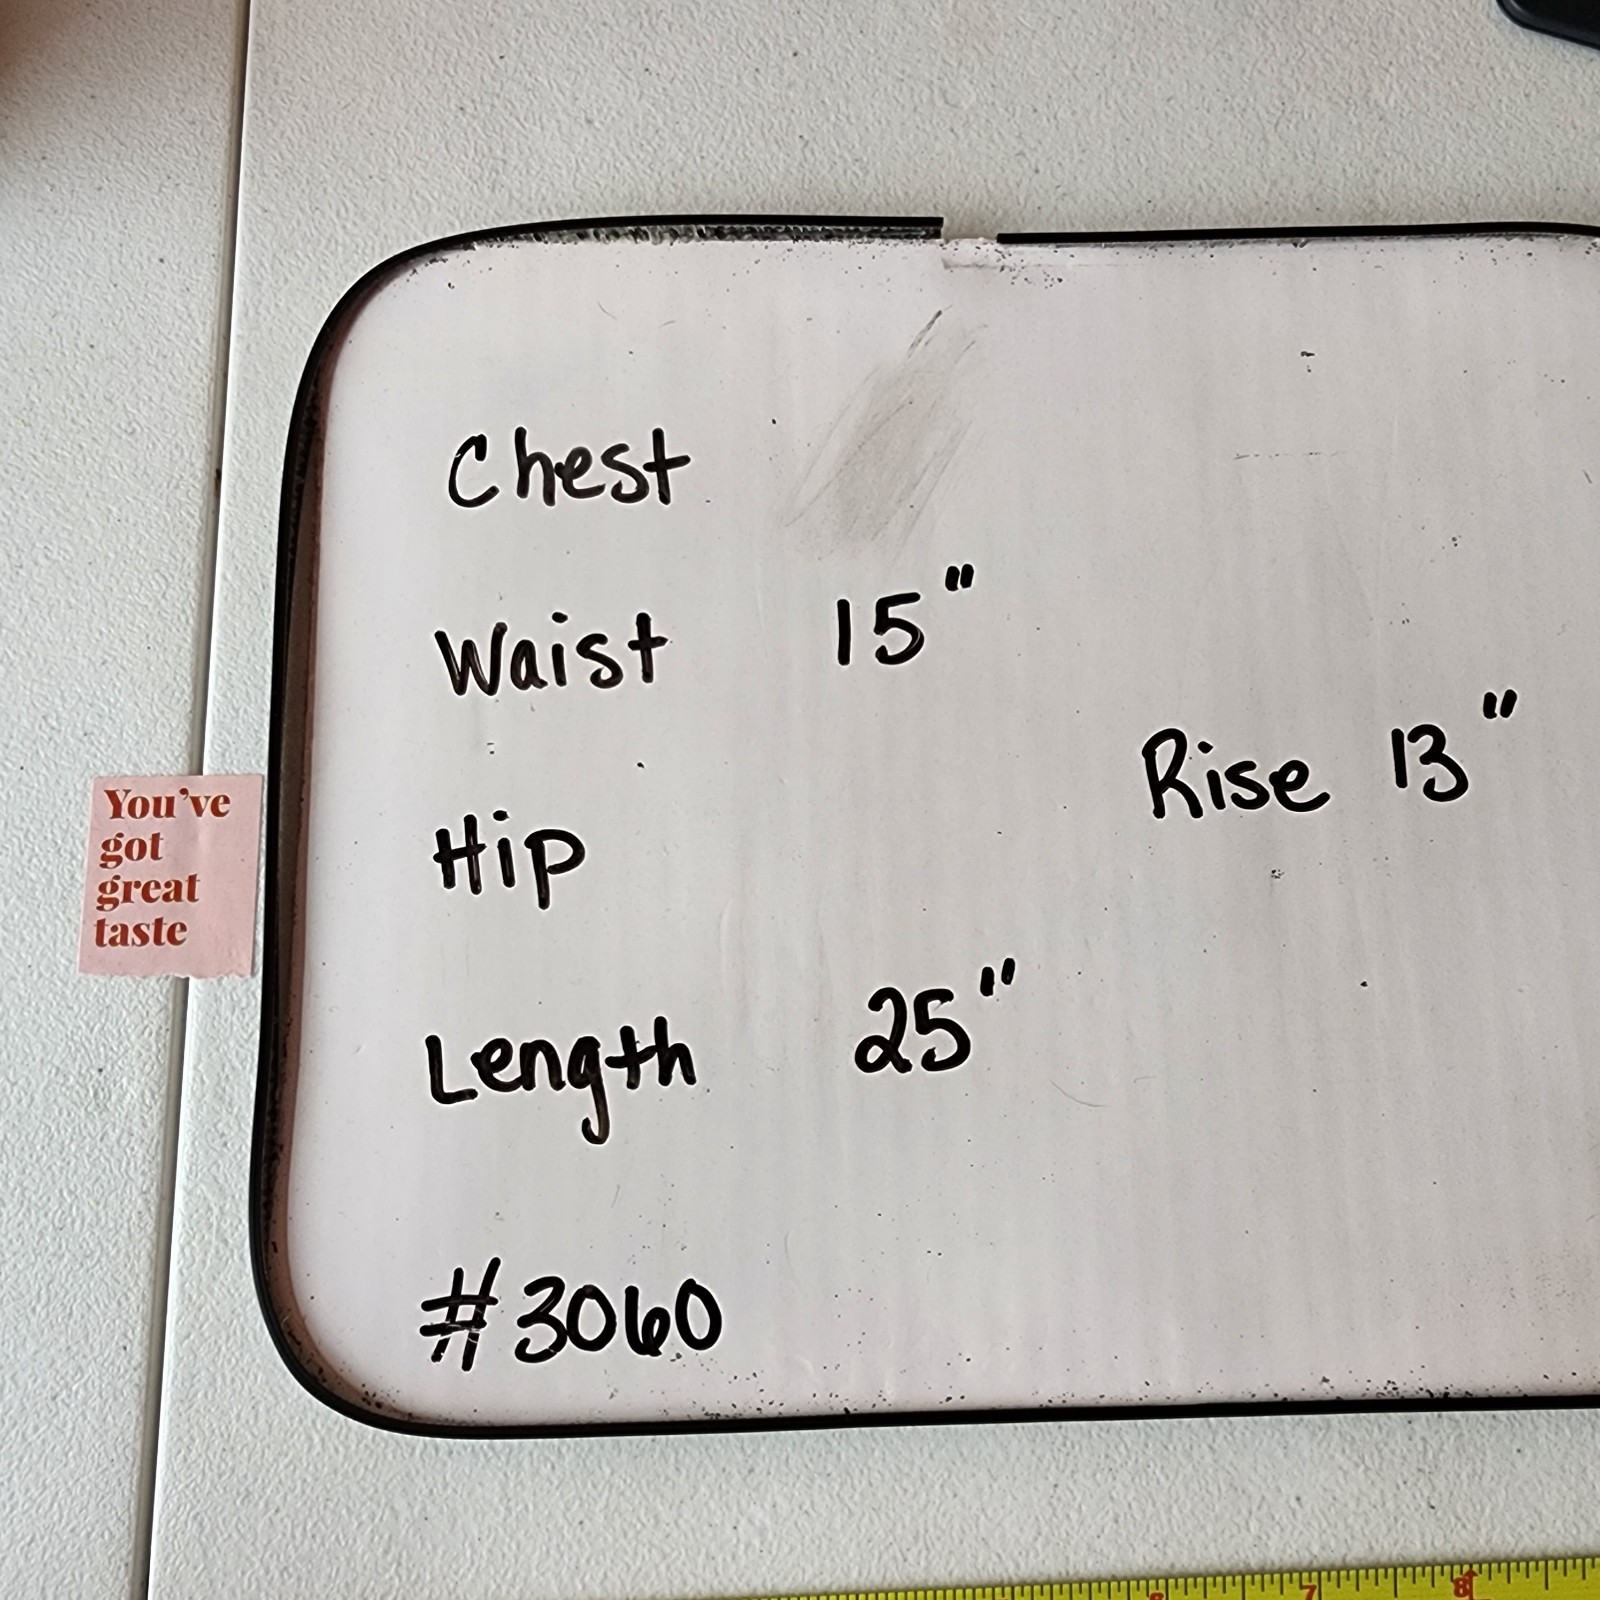 Chest
Waist 15"
Rise 13"
Hip
Length 25"
#3060
You've
got
great
taste
6 7 8